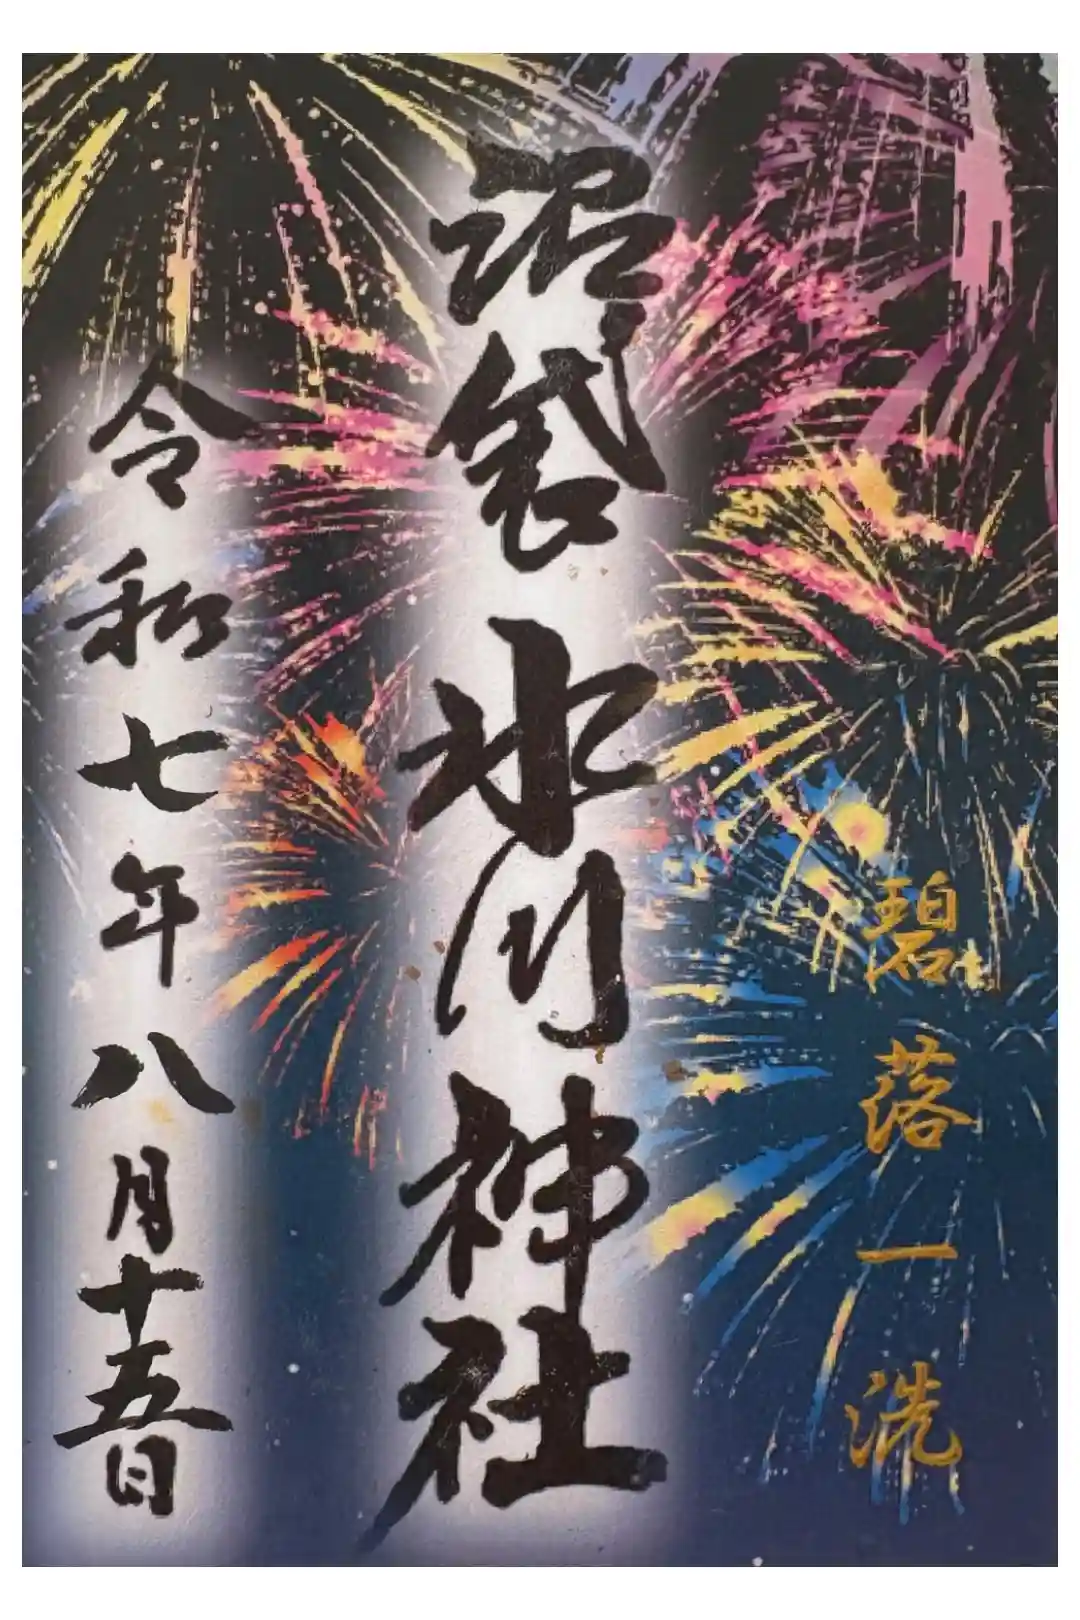 碧落一洗
沼袋氷川神社
令和七年八月十五日